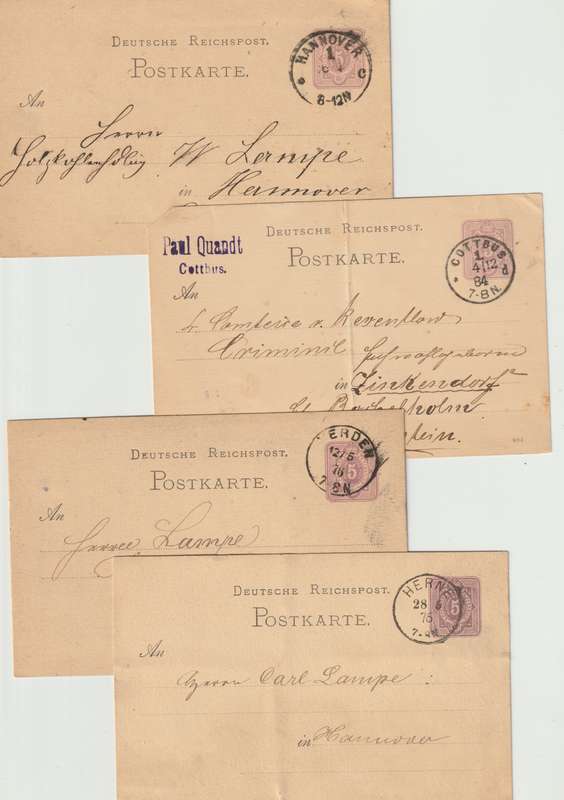 DEUTSCHE REICHSPOST.
POSTKARTE.
HANNOVER
1.
C
8-12N
An
Herrn
Holzkohlenhdlg W Lampe
in Hannover
Paul Quandt
Cottbus.
DEUTSCHE REICHSPOST.
POSTKARTE.
COTTBUS
1.
4 12
84
7-8N.
d
An
Comtesse v. Reventlow
Criminil
in Zinkendorf
DEUTSCHE REICHSPOST.
POSTKARTE.
ERDEN
12/5
76
7-8N
5
An
Herren Lampe
DEUTSCHE REICHSPOST.
POSTKARTE.
HERNE
28 5
75
5
An
Herrn Carl Lampe :
in Hannover